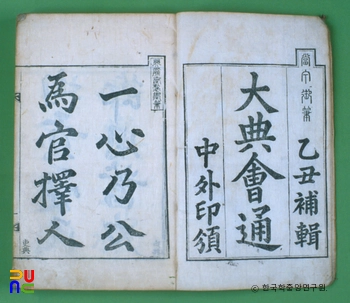 當宁御筆
乙丑補輯
大典會通
中外印頒
一心乃公
為官擇人
ⓒ 한국학중앙연구원